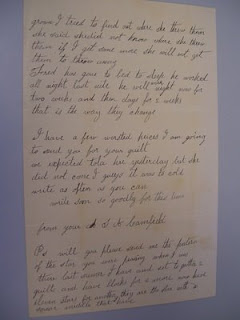 grown I tried to find out where she threw them
she said she did not know where she threw
them if I get some more she will not get
them to throw away
Fred has gone to bed to sleep he worked
all night last nite he will night now for
two weeks and then days for 2 weeks
that is the way they change
I have a few wasted pieces I am going
to send you for your quilt
we expected Tola her yesterday but she
did not come I guess it was to cold
write as often as you can
write soon so goodby for this time
from your
Ps will you please send me the pattern
of the star you were piecing when I was
there last summer I have and set to gather a
quilt and have blocks for a nother now have
eleven stars for another they are the star with a
square middle that